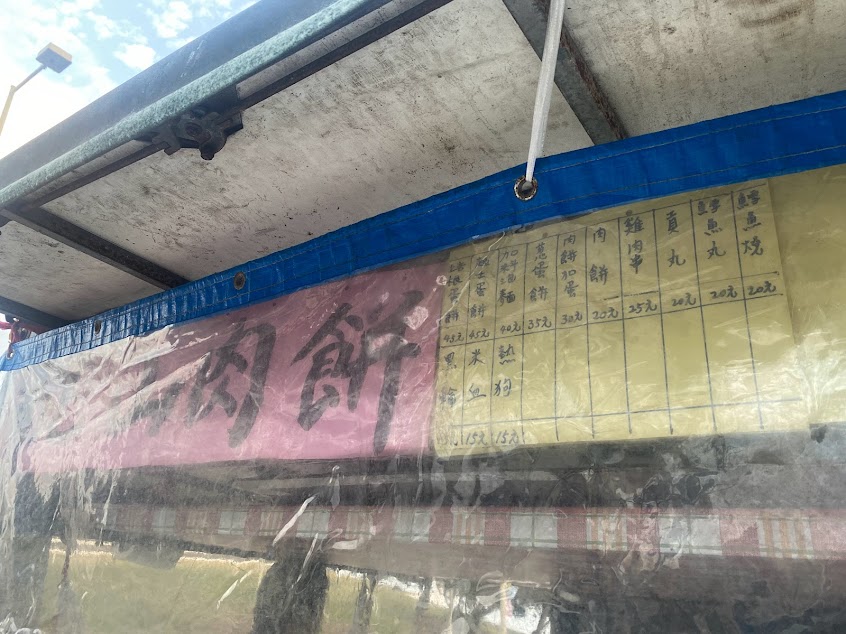 肉餅
鱈魚燒 20元
鱈魚丸 20元
貢丸 20元
雞肉串 25元
肉餅 20元
肉餅加蛋 30元
蔥蛋餅 35元
40元
起士蛋餅 45元
蛋餅 45元
熱狗 15元
米血 15元
黑輪